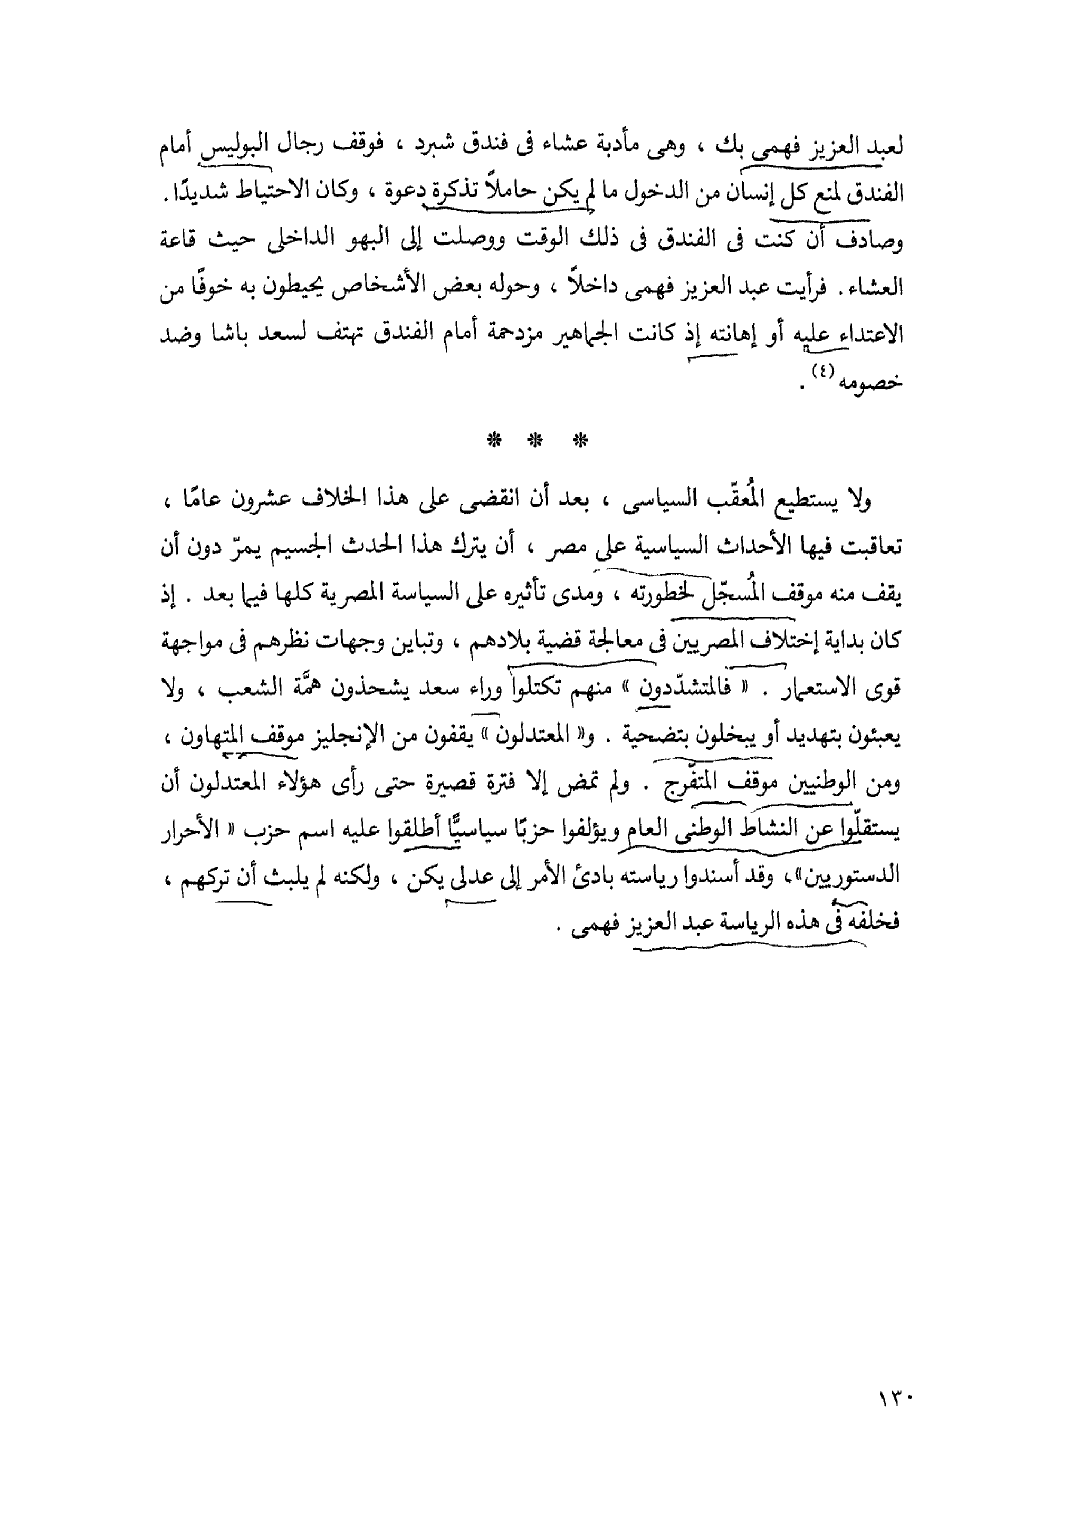 لعبد العزيز فهمى بك ، وهى مأدبة عشاء فى فندق شبرد ، فوقف رجال البوليس أمام
الفندق لمنع كل إنسان من الدخول ما لم يكن حاملاً تذكرة دعوة ، وكان الاحتياط شديدًا .
وصادف أن كنت فى الفندق فى ذلك الوقت ووصلت إلى البهو الداخلى حيث قاعة
العشاء . فرأيت عبد العزيز فهمى داخلاً ، وحوله بعض الأشخاص يحيطون به خوفًا من
الاعتداء عليه أو إهانته إذ كانت الجماهير مزدحمة أمام الفندق تهتف لسعد باشا وضد
خصومه (٤) .
* * *
ولا يستطيع المُعقّب السياسى ، بعد أن انقضى على هذا الخلاف عشرون عامًا ،
تعاقبت فيها الأحداث السياسية على مصر ، أن يترك هذا الحدث الجسيم يمرّ دون أن
يقف منه موقف المُسجّل لخطورته ، ومدى تأثيره على السياسة المصرية كلها فيما بعد . إذ
كان بداية إختلاف المصريين فى معالجة قضية بلادهم ، وتباين وجهات نظرهم فى مواجهة
قوى الاستعمار . « فالمتشدّدون » منهم تكتلوا وراء سعد يشحذون همَّة الشعب ، ولا
يعبئون بتهديد أو يبخلون بتضحية . و« المعتدلون » يقفون من الإنجليز موقف المتهاون ،
ومن الوطنيين موقف المتفّرج . ولم تمض إلا فترة قصيرة حتى رأى هؤلاء المعتدلون أن
يستقلّوا عن النشاط الوطنى العام ويؤلفوا حزبًا سياسيًّا أطلقوا عليه اسم حزب « الأحرار
الدستوريين »، وقد أسندوا رياسته بادئ الأمر إلى عدلى يكن ، ولكنه لم يلبث أن تركهم ،
فخلفه فى هذه الرياسة عبد العزيز فهمى .
١٣٠